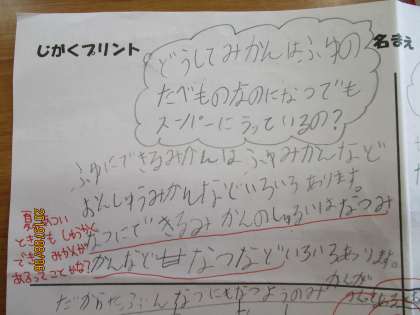 じがくプリント
名まえ
どうしてみかんはふゆの
たべものなのになつでも
スーパーにうっているの?
ふゆにできるみかんはふゆみかんなど
おんしゅうみかんなどいろいろあります。
なつにできるみかんのしゅるいはなつみ
かんなど甘なつなどいろいろあります。
夏あつい
ときでも
できるみかんが
あるってことかな?
だからたぶんなつにもなつようのみかんが